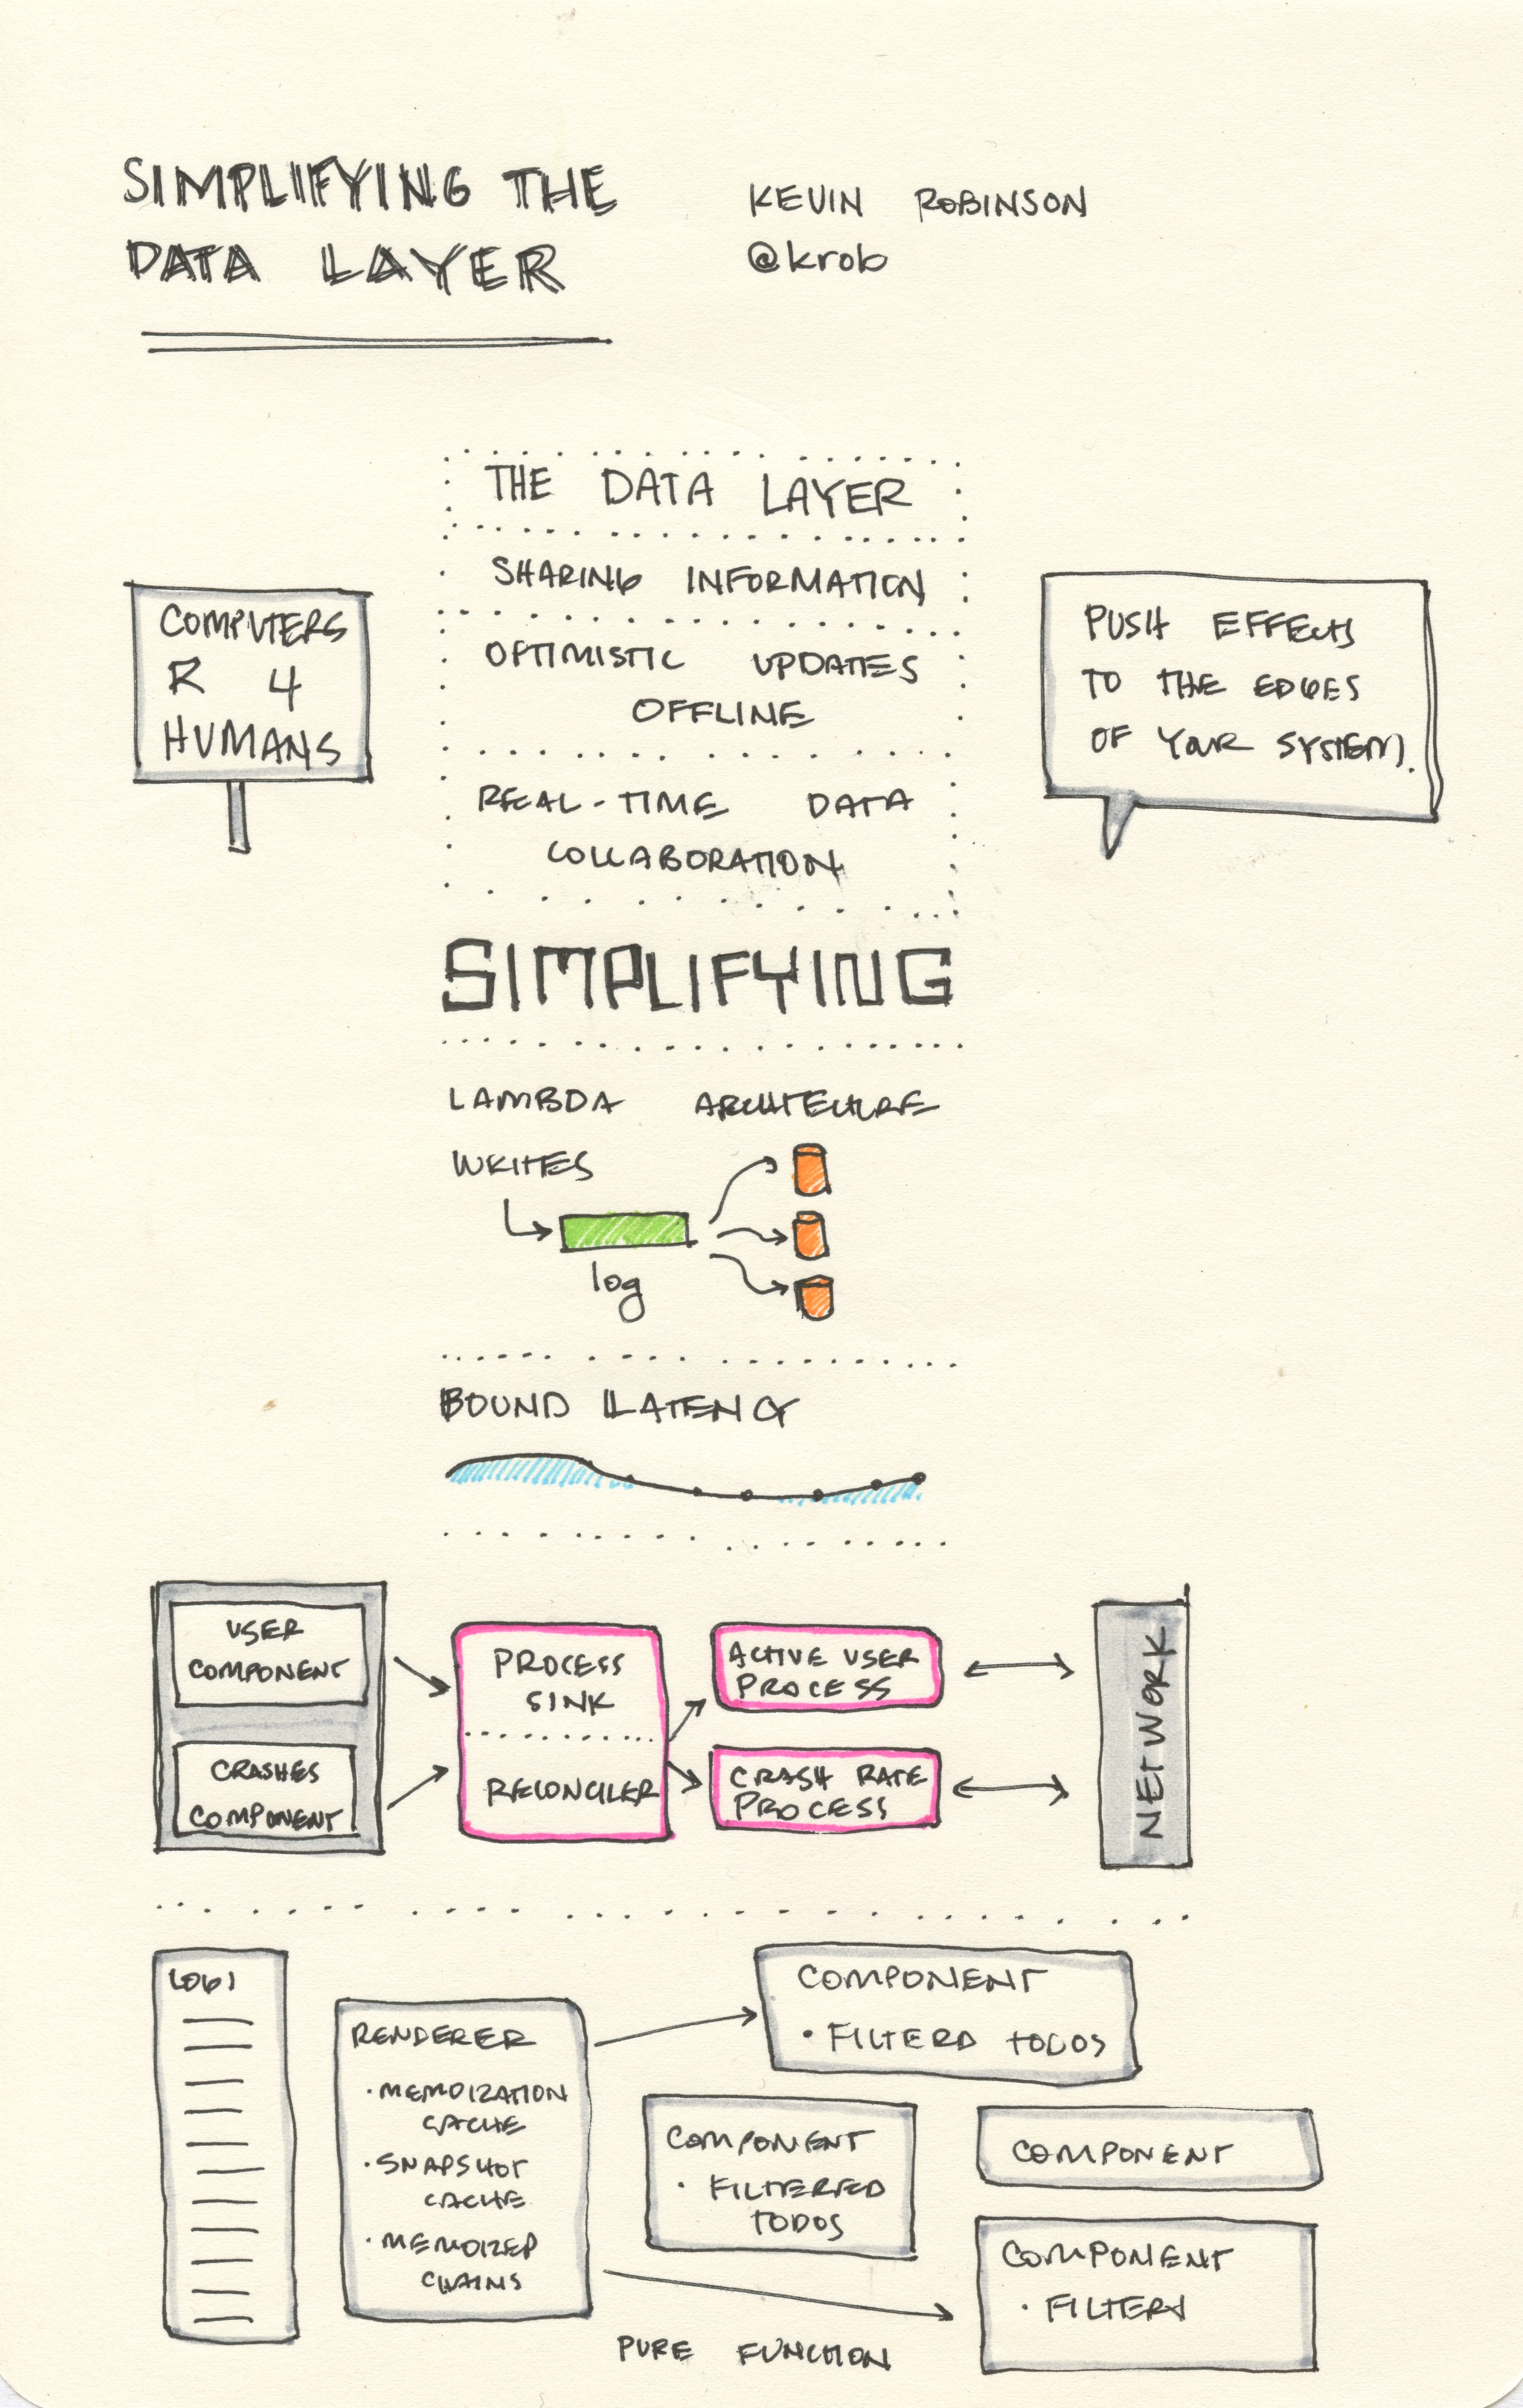 SIMPLIFYING THE
DATA LAYER
KEVIN ROBINSON
@krob
THE DATA LAYER
SHARING INFORMATION
OPTIMISTIC UPDATES
OFFLINE
REAL-TIME DATA
COLLABORATION
COMPUTERS
R 4
HUMANS
PUSH EFFECTS
TO THE EDGES
OF YOUR SYSTEM.
SIMPLIFYING
LAMBDA ARCHITECTURE
WRITES
log
BOUND LATENCY
USER
COMPONENT
CRASHES
COMPONENT
PROCESS
SINK
RECONCILER
ACTIVE USER
PROCESS
CRASH RATE
PROCESS
NETWORK
RENDERER
· MEMOIZATION
CACHE
· SNAPSHOT
CACHE
· MEMOIZED
CHAINS
COMPONENT
· FILTERD TODOS
COMPONENT
· FILTERED
TODOS
COMPONENT
COMPONENT
· FILTERS
PURE FUNCTION